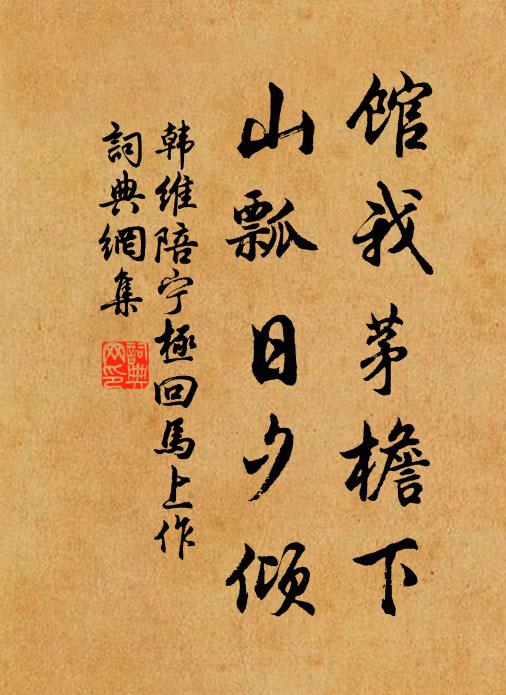 馆我茅檐下
山瓢日夕倾
韩维陪宁極回馬上作
詞典網集
詞典
网印